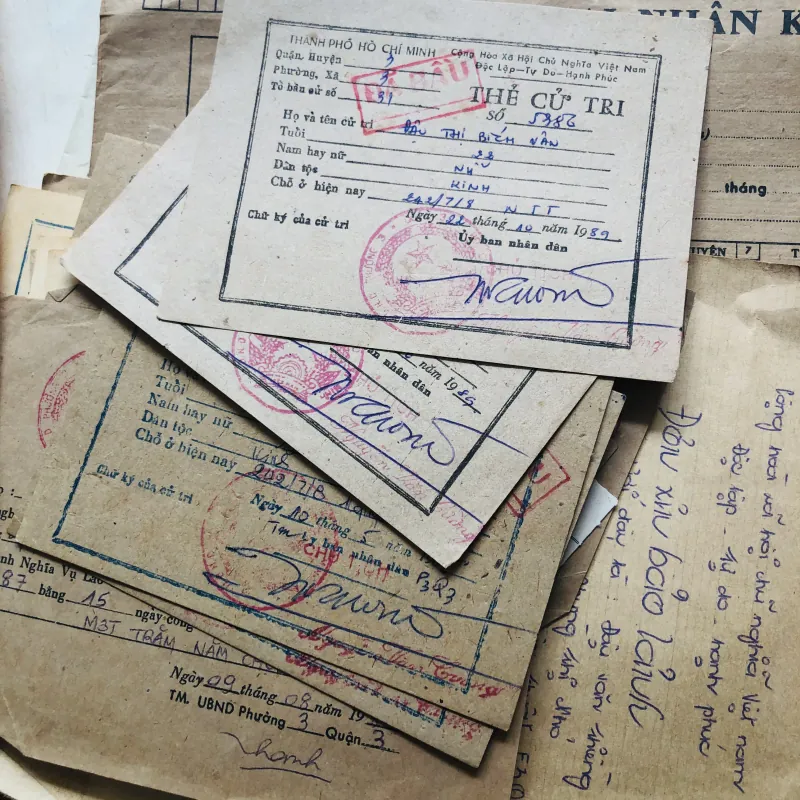 NHÂN K
tháng
7
THÀNH PHỐ HỒ CHÍ MINH
Cộng Hòa Xã Hội Chủ Nghĩa Việt Nam
Độc Lập—Tự Do—Hạnh Phúc
Quận, Huyện 3
Phường, Xã 3
Tổ bầu cử số 39
ĐÃ BẦU
THẺ CỬ TRI
SỐ 5386
Họ và tên cử tri ĐẬU THỊ BÍCH VÂN
Tuổi 22
Nam hay nữ NỮ
Dân tộc KINH
Chỗ ở hiện nay 242/7/8 NTT
Ngày 22 tháng 10 năm 1989
Chữ ký của cử tri
Ủy ban nhân dân
năm 1989
ban nhân dân
Họ v
Tuổi
Nam hay nữ
Dân tộc
Chỗ ở hiện nay 242/7/8
Chữ ký của cử tri
Ngày 10 tháng 5 năm
TM Ủy ban nhân dân P3Q3
CHỦ TỊCH
nh Nghĩa Vụ Lao
87 bằng 15 ngày công
MỘT TRĂM NĂM
Ngày 09 tháng 08 năm 19
TM. UBND Phường 3 Quận 3
Thanh
Cộng hoà xã hội chủ nghĩa Việt nam
Độc lập - Tự do - hạnh phúc
Đơn xin bảo lãnh